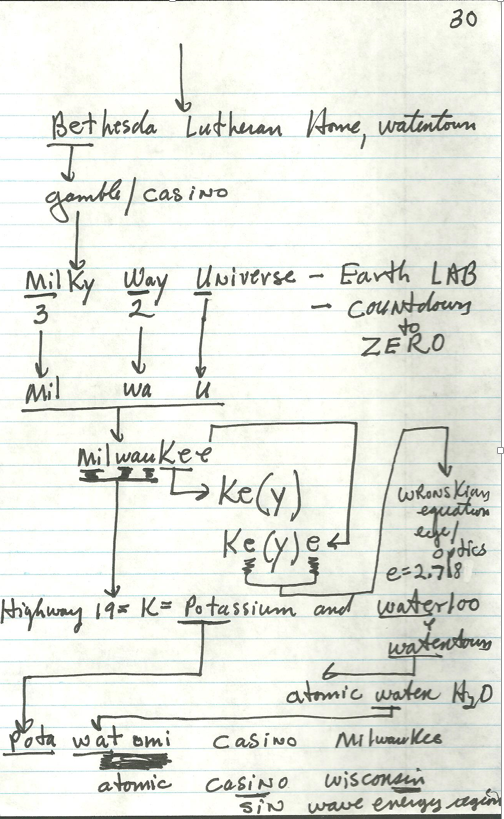 30
Bethesda Lutheran Home, watertown
gamble/casino
Milky Way Universe - Earth LAB
3 2 - COUNTdown
to
ZERO
Mil wa u
Milwaukee
Ke(y)
Ke(y)e
WRONSKian
equation
eye/
optics
e=2.718
Highway 19= K= Potassium and waterloo
watertown
atomic water H2O
Pota watomi CASINO Milwaukee
atomic casino wisconsin
sin wave energy region